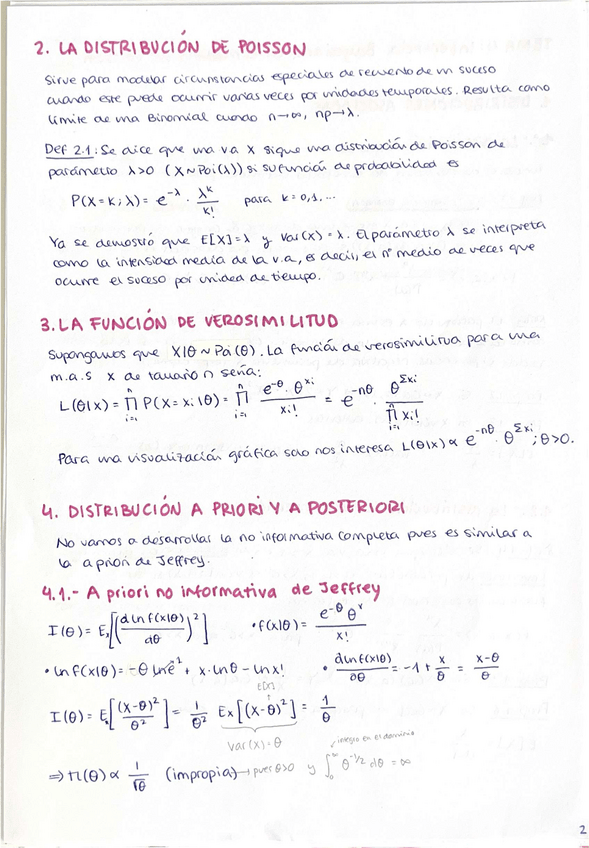 2. LA DISTRIBUCIÓN DE POISSON
Sirve para modelar circunstancias especiales de recuento de un suceso
cuando este puede ocurrir varias veces por unidades temporales. Resulta como
límite de una Binomial cuando n→∞, np→λ.
Def 2.1: Se dice que una va X sigue una distribución de Poisson de
parámetro λ>0 (X~Poi(λ)) si su función de probabilidad es
P(X=k;λ) = e^{-λ} · λ^k / k! para k=0,1,...
Ya se demostró que E[X]=λ y Var(x)=λ. El parámetro λ se interpreta
como la intensidad media de la v.a, es decir, el nº medio de veces que
ocurre el suceso por unidad de tiempo.
3. LA FUNCIÓN DE VEROSIMILITUD
Supongamos que X|θ ~ Po(θ). La función de verosimilitud para una
m.a.s x de tamaño n sería:
L(θ|x) = ∏_{i=1}^{n} P(X=xi|θ) = ∏_{i=1}^{n} e^{-θ}·θ^{xi} / xi! = e^{-nθ} · θ^{Σxi} / ∏_{i=1}^{n} xi!
Para una visualización gráfica solo nos interesa L(θ|x) ∝ e^{-nθ}·θ^{Σxi}; θ>0.
4. DISTRIBUCIÓN A PRIORI Y A POSTERIORI
No vamos a desarrollar la no informativa completa pues es similar a
la a priori de Jeffrey.
4.1.- A priori no informativa de Jeffrey
I(θ) = Ex[(d ln f(x|θ) / dθ)^2] • f(x|θ) = e^{-θ} θ^x / x!
• ln f(x|θ) = -θ ln e^1 + x·ln θ - ln x! • d ln f(x|θ) / dθ = -1 + x/θ = x-θ / θ
E[X]
I(θ) = Ex[(x-θ)^2 / θ^2] = 1/θ^2 Ex[(x-θ)^2] = 1/θ
Var(x)=θ
integro en el dominio
⇒ π(θ) ∝ 1/√θ (impropia) → pues θ>0 y ∫_0^∞ θ^{-1/2} dθ = ∞
2